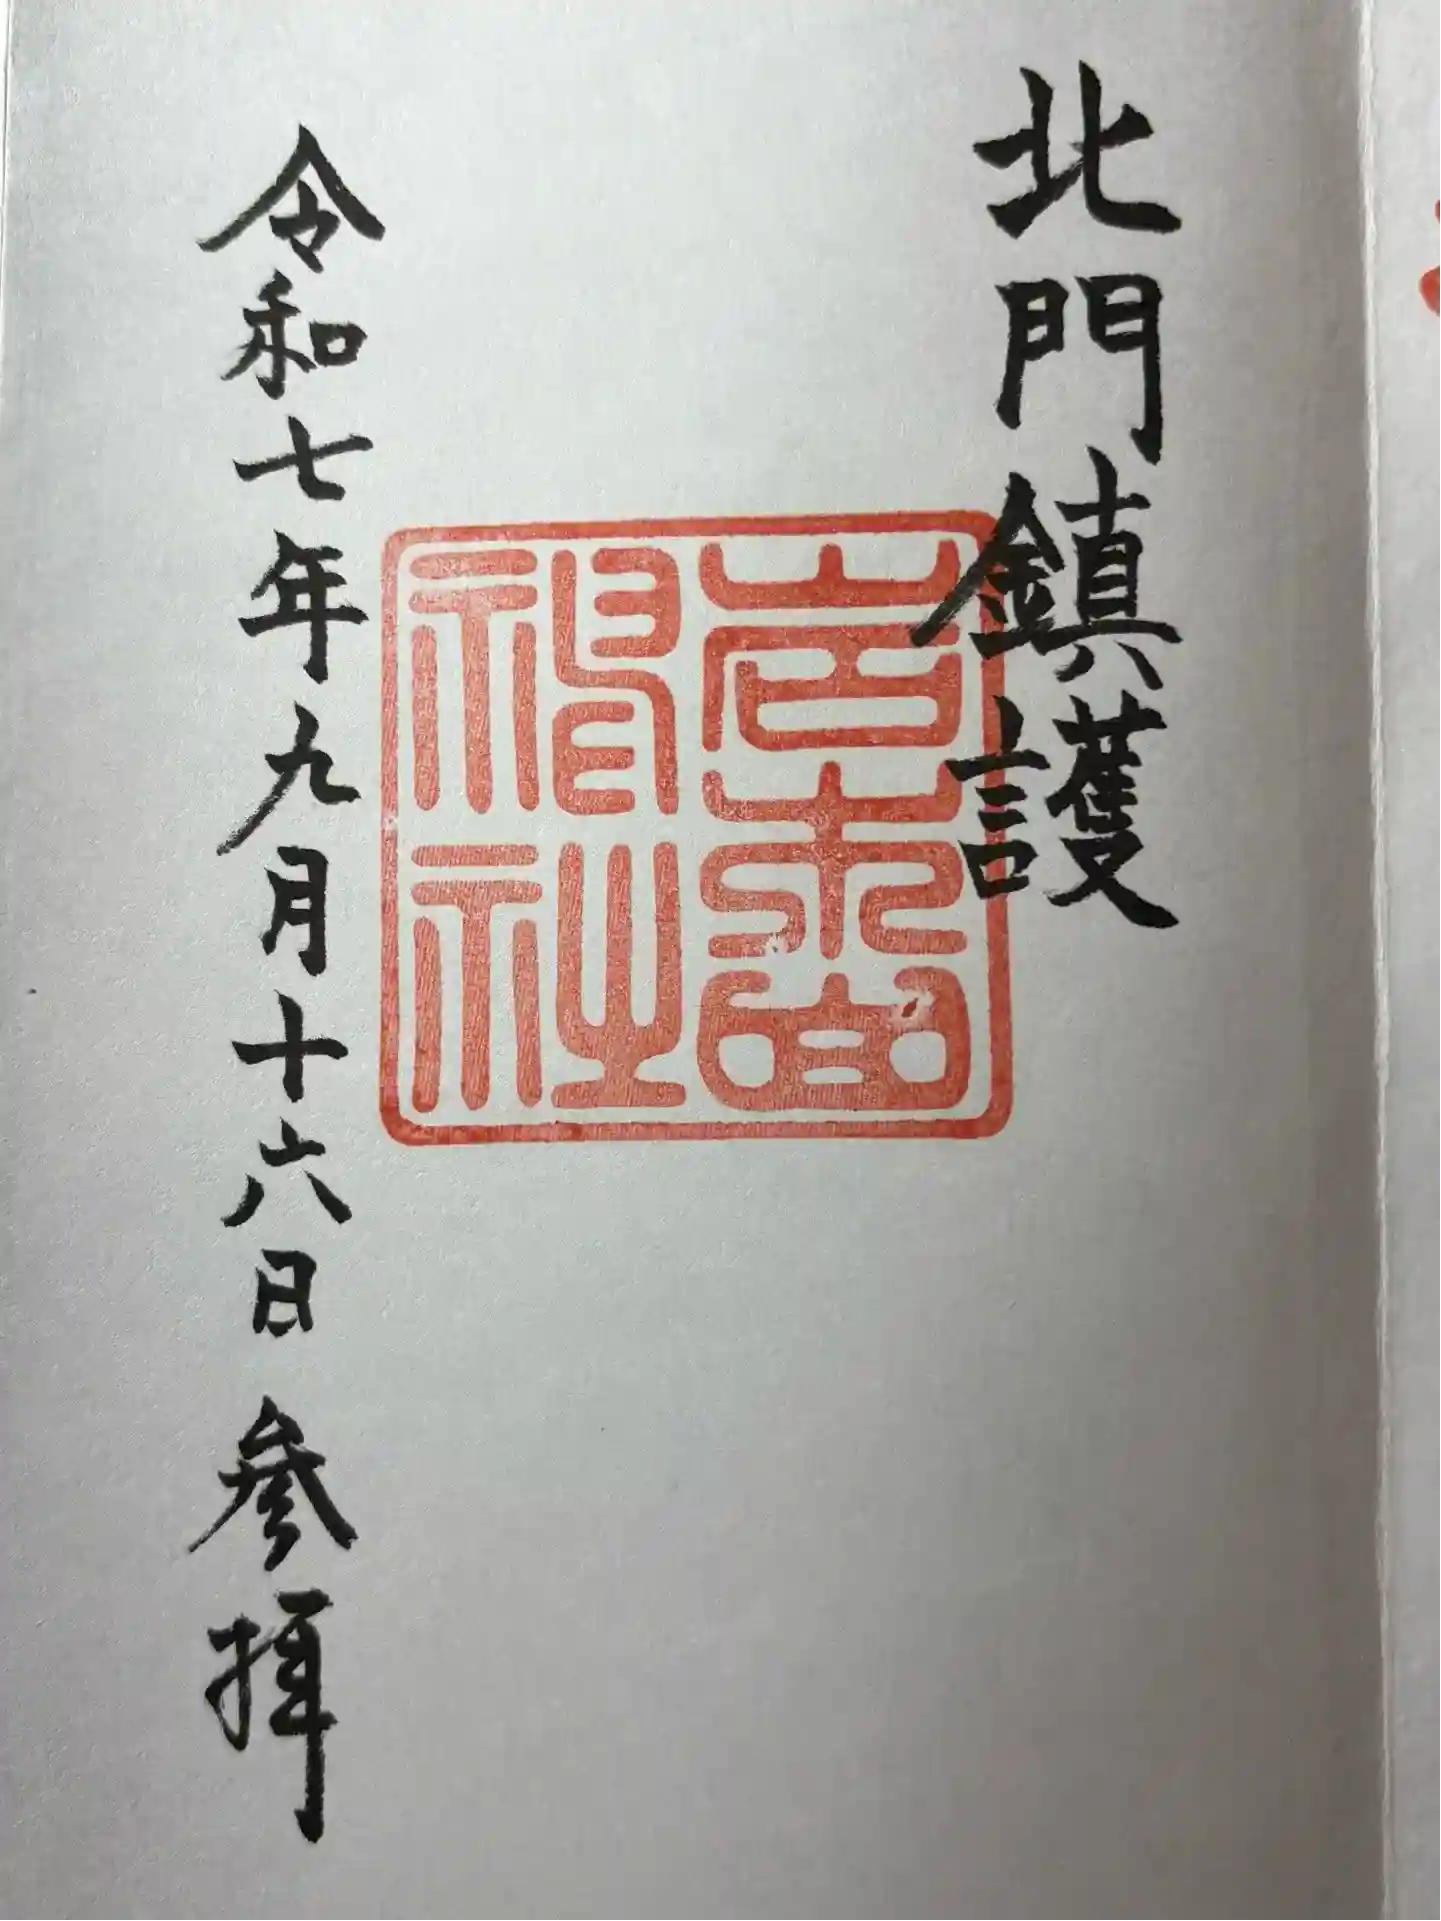 北門鎮護
岩木山
神社
令和七年九月十六日参拝